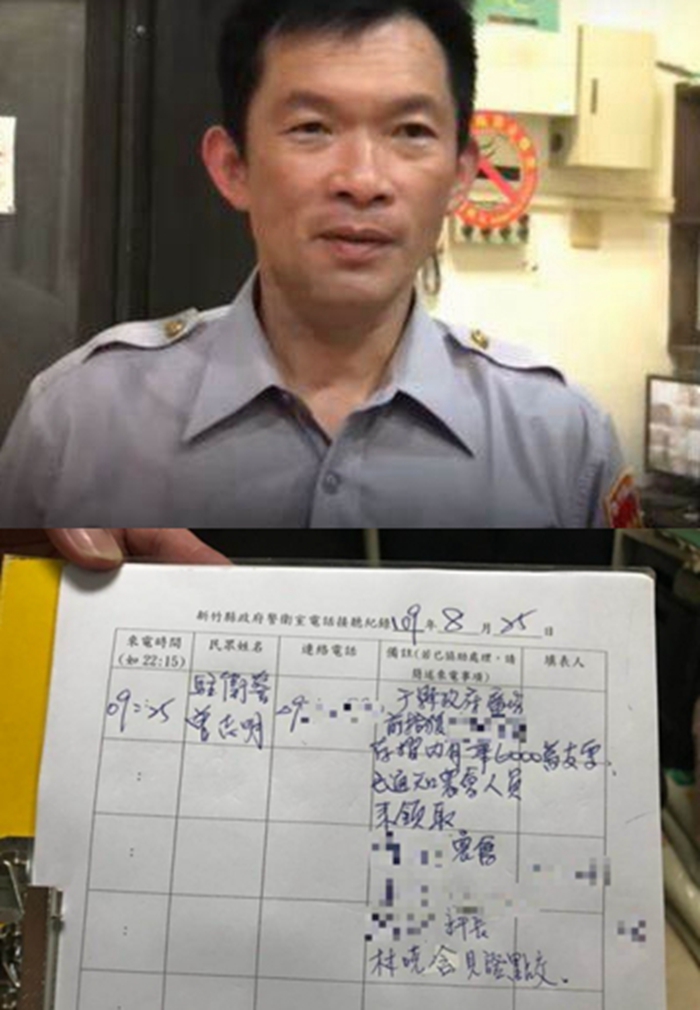 新竹縣政府警衛室電話接聽紀錄 109年 8 月 25 日
來電時間
(如 22:15)
民眾姓名
連絡電話
備註(若已協助處理,請
簡述來電事項)
填表人
09:25
駐衛警
曾志明
09
于縣政府
前拾獲
存摺內有一筆6000萬支票.
已通知客寮人員
來領取
科長
林曉含見證點交.